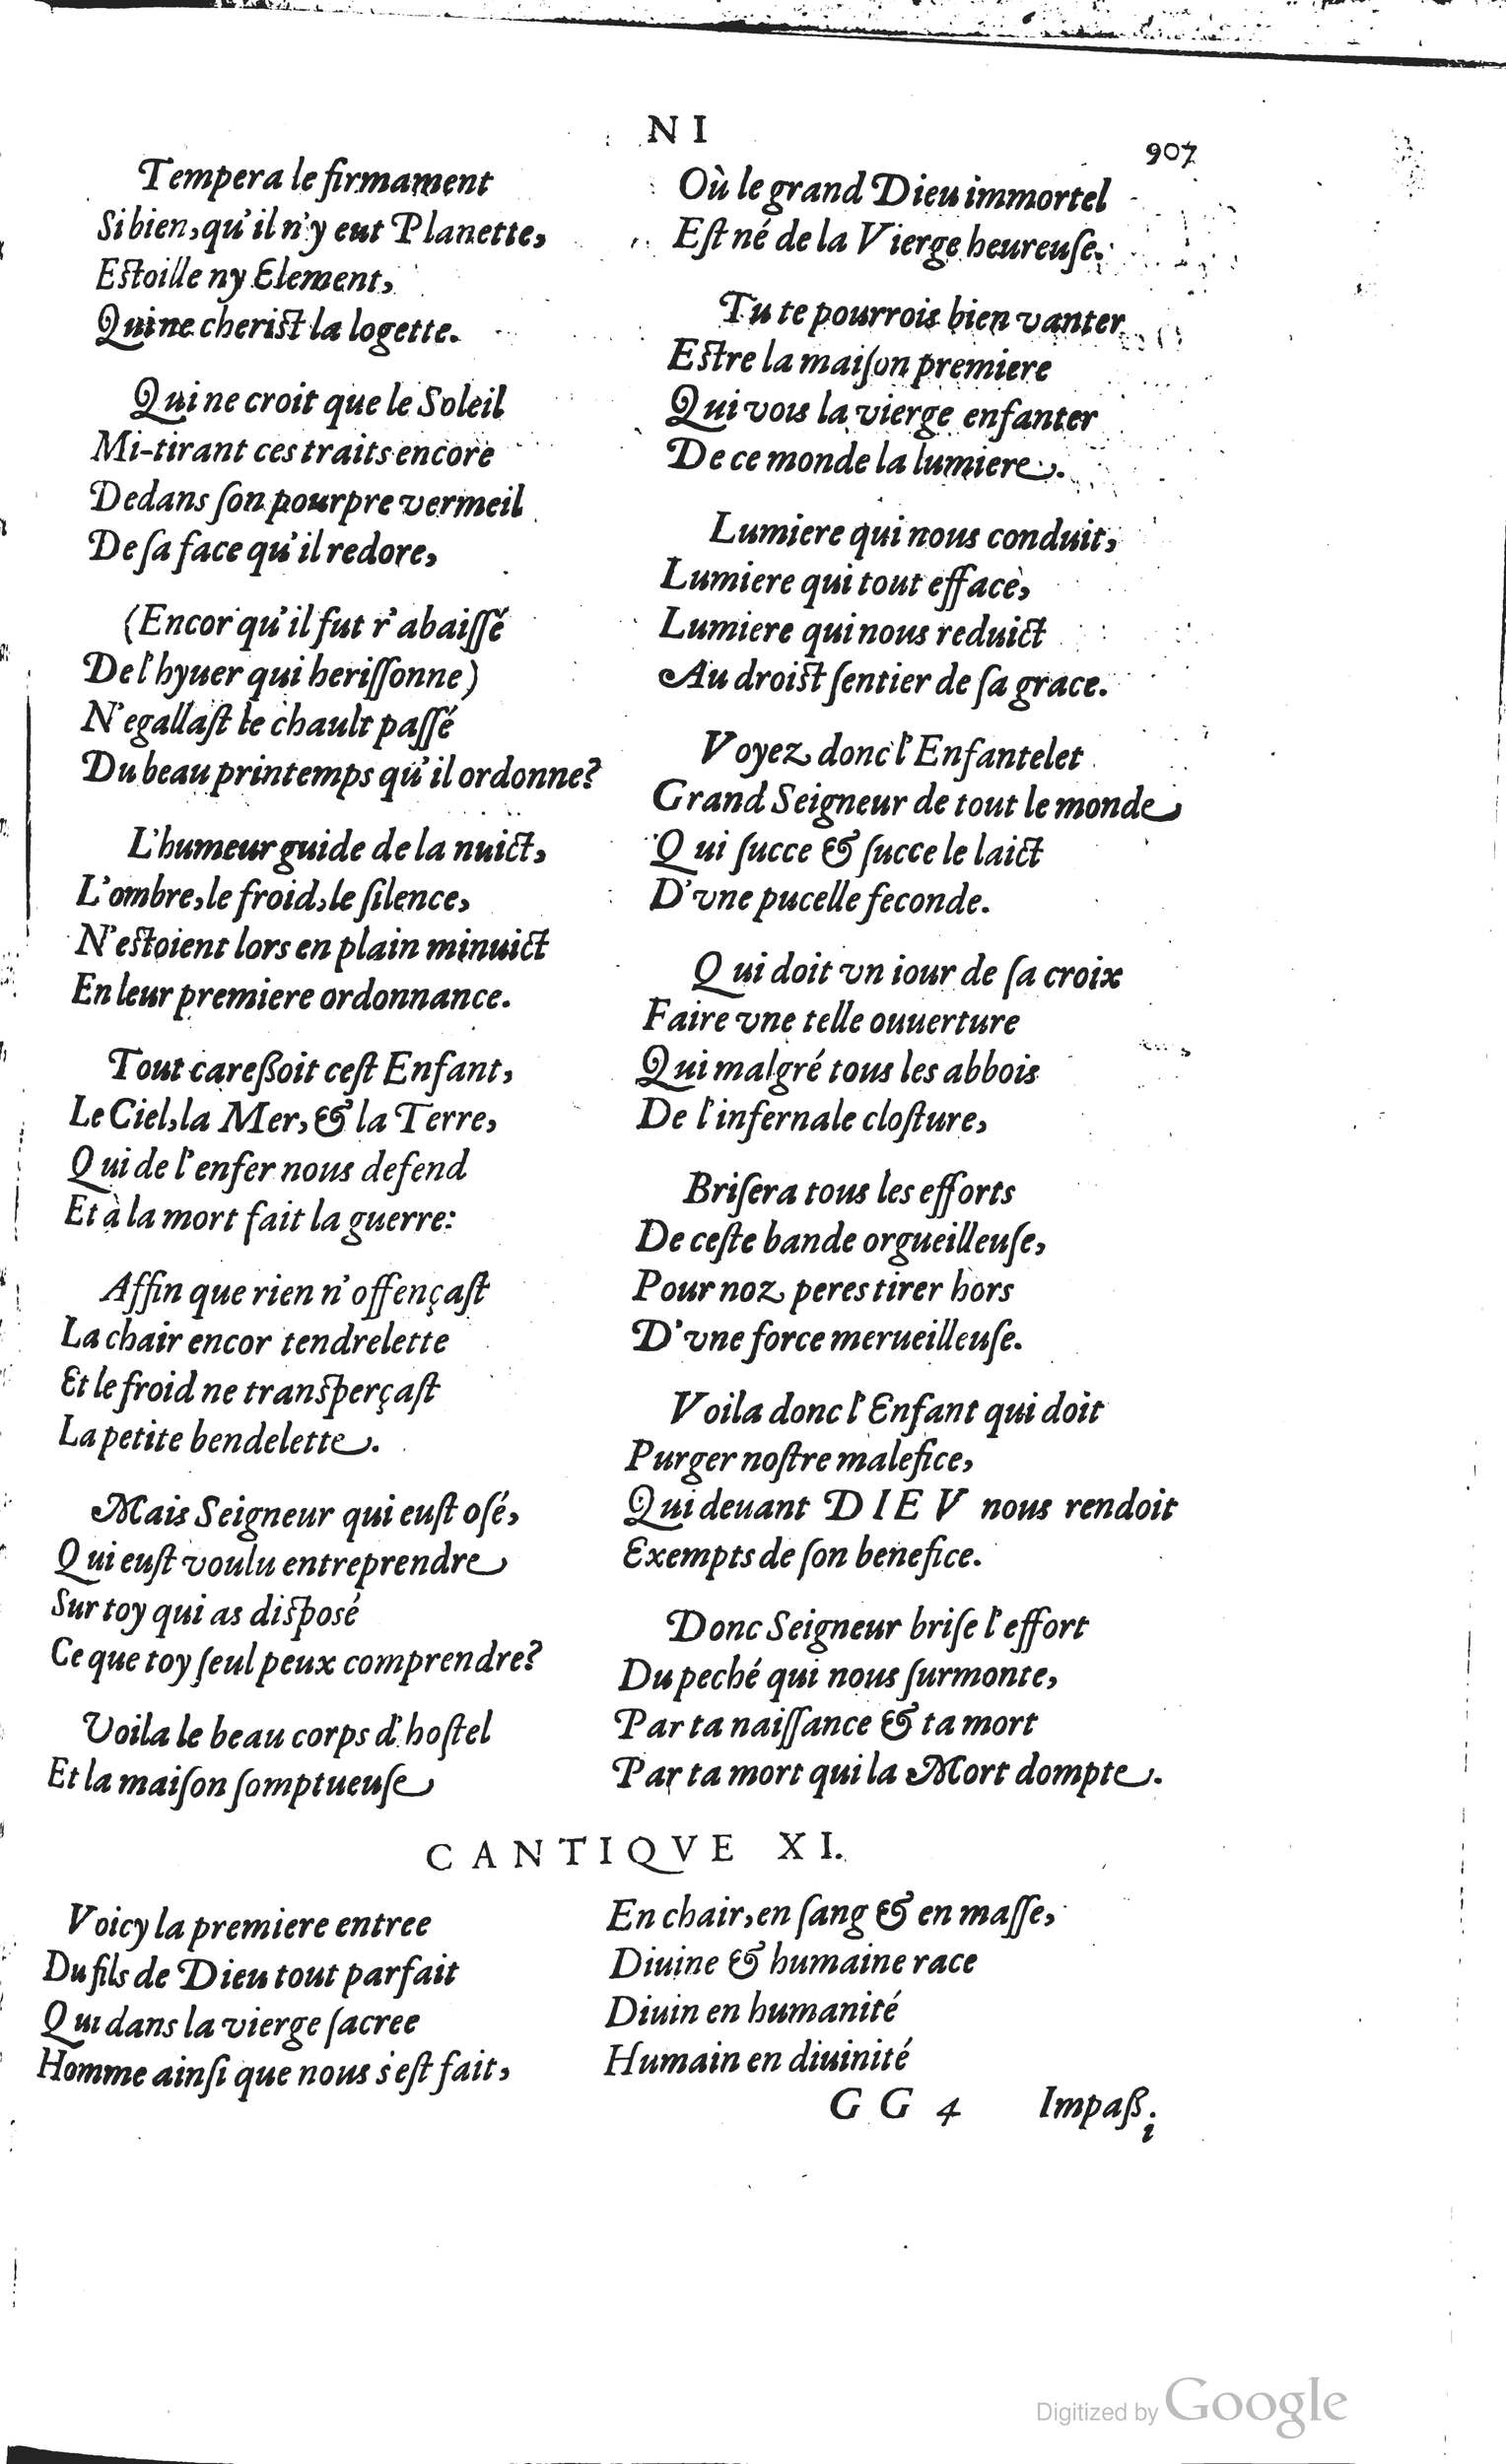 NI
907
Tempera le firmament
Si bien, qu'il n'y eut Planette,
Estoille ny Element,
Qui ne cherist la logette.
Qui ne croit que le Soleil
Mi-tirant ces traits encore
Dedans ſon pourpre vermeil
De ſa face qu'il redore,
(Encor qu'il fut r'abaiſſé
De l'hyuer qui heriſſonne)
N'egallaſt le chault paſſé
Du beau printemps qu'il ordonne?
L'humeur guide de la nuict,
L'ombre, le froid, le ſilence,
N'estoient lors en plain minuict
En leur premiere ordonnance.
Tout careßoit ceſt Enfant,
Le Ciel, la Mer, & la Terre,
Qui de l'enfer nous defend
Et à la mort fait la guerre:
Affin que rien n'offençaſt
La chair encor tendrelette
Et le froid ne transperçaſt
La petite bendelette.
Mais Seigneur qui euſt oſé,
Qui euſt voulu entreprendre
Sur toy qui as disposé
Ce que toy ſeul peux comprendre?
Voila le beau corps d'hoſtel
Et la maiſon ſomptueuſe
Où le grand Dieu immortel
Eſt né de la Vierge heureuſe.
Tu te pourrois bien vanter
Estre la maiſon premiere
Qui vois la vierge enfanter
De ce monde la lumiere.
Lumiere qui nous conduit,
Lumiere qui tout efface,
Lumiere qui nous reduict
Au droist ſentier de ſa grace.
Voyez donc l'Enfantelet
Grand Seigneur de tout le monde
Qui ſucce & ſucce le laict
D'vne pucelle feconde.
Qui doit vn iour de ſa croix
Faire vne telle ouuerture
Qui malgré tous les abbois
De l'infernale cloſture,
Briſera tous les efforts
De ceſte bande orgueilleuſe,
Pour noz peres tirer hors
D'vne force merueilleuſe.
Voila donc l'Enfant qui doit
Purger noſtre malefice,
Qui deuant DIEV nous rendoit
Exempts de ſon benefice.
Donc Seigneur briſe l'effort
Du peché qui nous ſurmonte,
Par ta naiſſance & ta mort
Par ta mort qui la Mort dompte.
CANTIQVE XI.
Voicy la premiere entree
Du fils de Dieu tout parfait
Qui dans la vierge ſacree
Homme ainſi que nous s'eſt fait,
En chair, en ſang & en maſſe,
Diuine & humaine race
Diuin en humanité
Humain en diuinité
GG 4 Impaß.
i
Digitized by Google